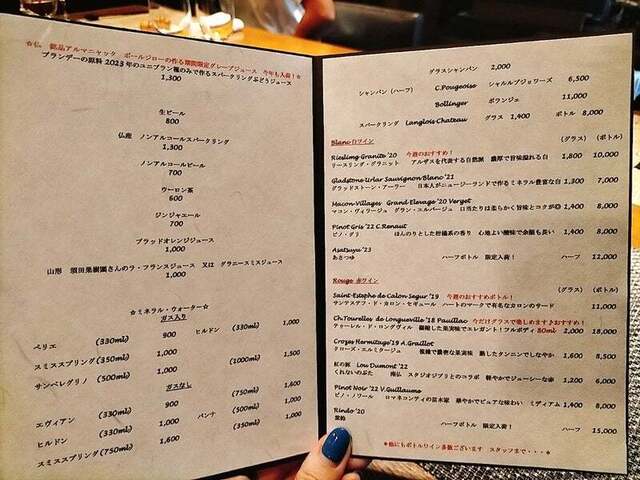 ☆仏 銘品アルマニャック ポールジローの作る期間限定グレープジュース 今年も入荷!☆
ブランデーの原料2023年のユニブラン種のみで作るスパークリングぶどうジュース
1,300
生ビール
800
仏産 ノンアルコールスパークリング
1,300
ノンアルコールビール
700
ウーロン茶
600
ジンジャエール
700
ブラッドオレンジジュース
1,000
山形 須田果樹園さんのラ・フランスジュース 又は グラニースミスジュース
1,000
☆ミネラル・ウォーター☆
ガス入り
ペリエ (330ml) 900 ヒルドン (330ml) 1,000
スミススプリング(350ml) 1,000
サンペレグリノ (500ml) 1,000 (1000ml) 1,500
ガスなし
エヴィアン (330ml) 900 (750ml) 1,600
ヒルドン (330ml) 1,000 パンナ (500ml) 1,000
スミススプリング(750ml) 1,600 (350ml) 1,000
グラスシャンパン 2,000
シャンパン (ハーフ) C.Pougeoise シャルルプジョワーズ 6,500
Bollinger ボランジェ 11,000
スパークリング Langlois Chateau グラス 1,400 ボトル 8,000
Blanc白ワイン (グラス) (ボトル)
Riesling Granite '20 今週のおすすめ!
リースリング・グラニット アルザスを代表する自然派 濃厚で旨味溢れる白 1,800 10,000
Gladstone Urlar Sauvignon Blanc '21
グラッドストーン・アーラー 日本人がニュージーランドで作るミネラル豊富な白 1,300 7,000
Macon-Villages Grand Elevage '20 Verget
マコン・ヴィラージュ グラン・エルバージュ 口当たりは柔らかく旨味とコクが◎ 1,400 8,000
Pinot Gris '22 C.Renaut
ピノ・グリ ほんのりとした柑橘系の香り 心地よい酸味で余韻も長い 1,400 8,000
Asatsuyu '23
あさつゆ ハーフボトル 限定入荷! ハーフ 12,000
Rouge 赤ワイン (グラス) (ボトル)
Saint-Estephe de Calon Segur '19 今週のおすすめボトル!
サンテステフ・ド・カロン・セギュール ハートのマークで有名なカロンのサード 11,000
Ch.Tourelles de Longueville '18 Pauillac 今だけグラスで楽しめます♪おすすめ
トゥーレル・ド・ロングヴィル 凝縮した果実味でエレガント!フルボディ 80ml 2,000 18,000
Crozes Hermitage '19 A.Graillot
クローズ・エルミタージュ 複雑で濃密な果実味 熟したタンニンでしなやか 1,600 8,500
紅の豚 Lou Dumont '22
くれないのぶた 南仏 スタジオジブリとのコラボ 軽やかでジューシーな赤 1,200 6,000
Pinot Noir '22 V.Guillaume
ピノ・ノワール ロマネコンティの苗木家 華やかでピュアな味わい ミディアム 1,400 8,000
Rindo '20
紫鈴 ハーフボトル 限定入荷! ハーフ 15,000
★他にもボトルワイン多数ございます スタッフまで・・・★